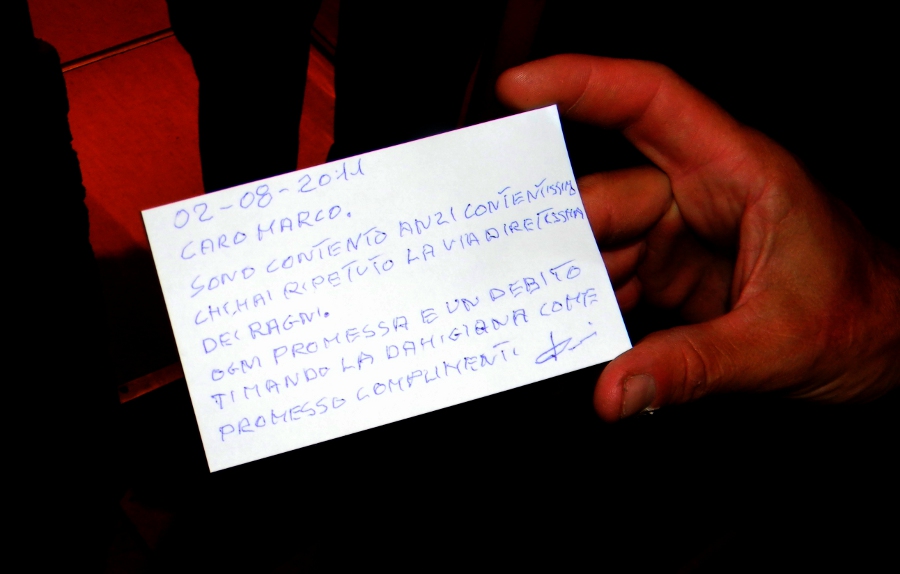 02-08-2011
CARO MARCO.
SONO CONTENTO ANZI CONTENTISSIMO
CHE HAI RIPETUTO LA VIA DIRETISSIMA
DEI RAGNI.
OGNI PROMESSA E UN DEBITO
TI MANDO LA DAMIGIANA COME
PROMESSO COMPLIMENTI